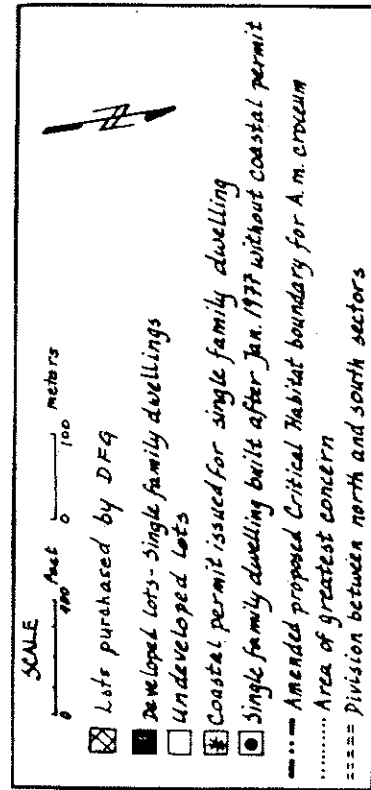 SCALE
0 400 feet 0 100 meters
Lots purchased by DFG
Developed lots - Single family dwellings
Undeveloped Lots
Coastal permit issued for single family dwelling
Single family dwelling built after Jan. 1977 without coastal permit
Amended proposed Critical Habitat boundary for A. m. croceum
Area of greatest concern
Division between north and south sectors